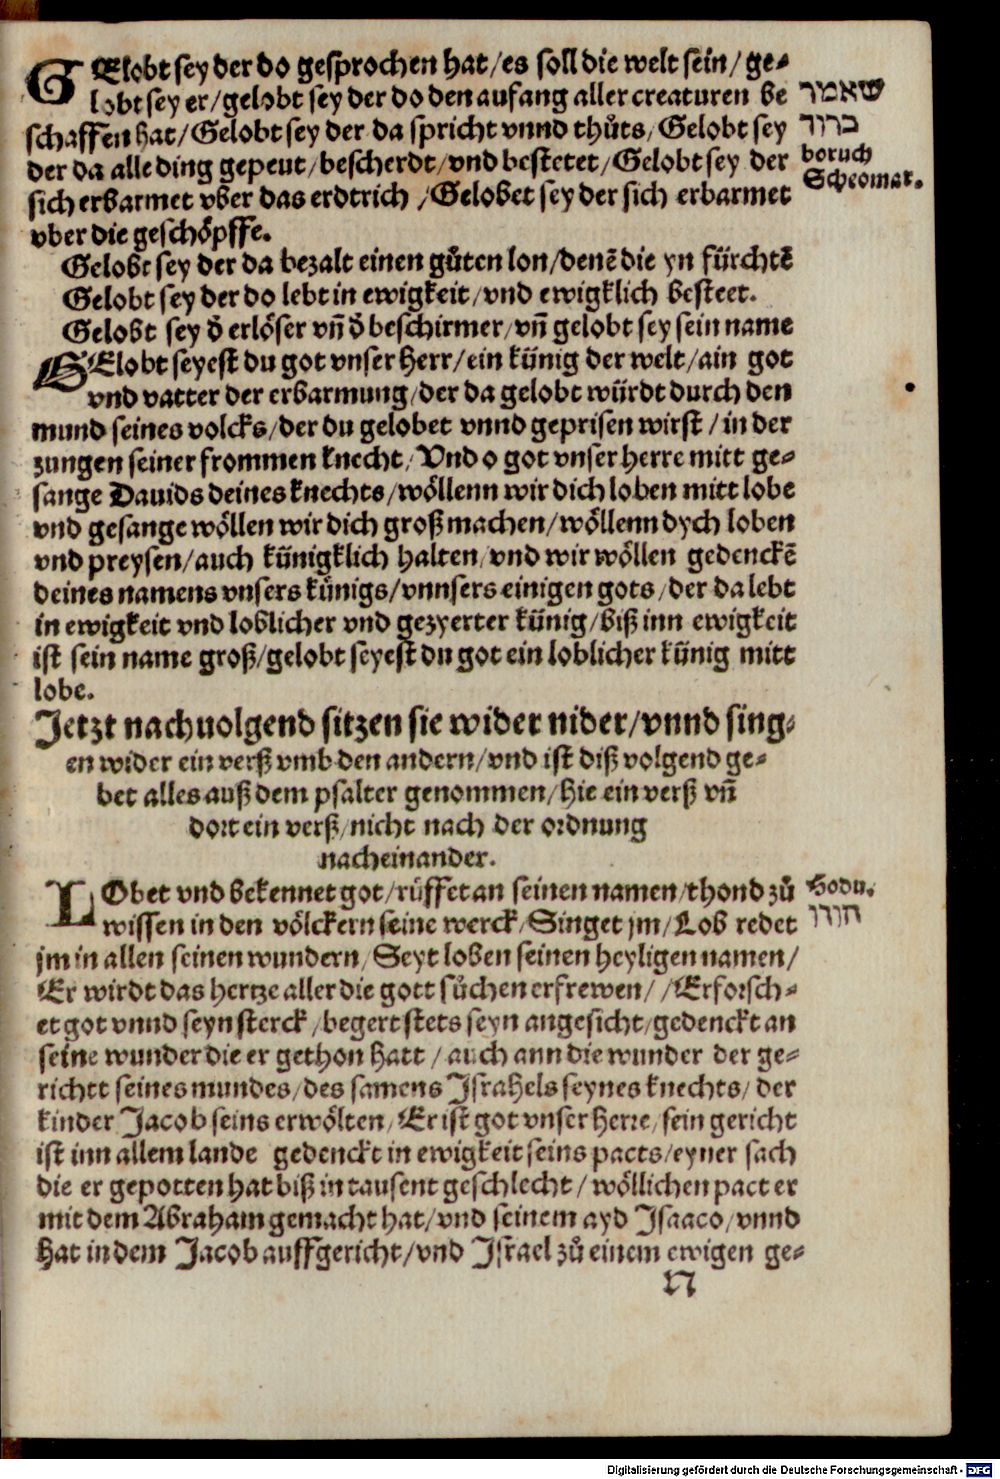 GElobt sey der do gesprochen hat/es soll die welt sein/ge-
lobt sey er/gelobt sey der do den aufang aller creaturen be
שאמר
schaffen hat/Gelobt sey der da spricht vnnd thůts/Gelobt sey
ברוך
der da alle ding gepeut/bescherdt/vnd bestetet/Gelobt sey der
boruch
sich erbarmet vber das erdtrich/Gelobet sey der sich erbarmet
Scheomar.
vber die geschöpffe.
Gelobt sey der da bezalt einen gůten lon/denē die yn fürchtē
Gelobt sey der do lebt in ewigkeit/vnd ewigklich besteet.
Gelobt sey d̕ erlöser vñ d̕ beschirmer/vñ gelobt sey sein name
GElobt seyest du got vnser herr/ein künig der welt/ain got
vnd vatter der erbarmung/der da gelobt würdt durch den
mund seines volcks/der du gelobet vnnd geprisen wirst/in der
zungen seiner frommen knecht/Vnd o got vnser herre mitt ge-
sange Dauids deines knechts/wöllenn wir dich loben mitt lobe
vnd gesange wöllen wir dich groß machen/wöllenn dych loben
vnd preysen/auch künigklich halten/vnd wir wöllen gedenckē
deines namens vnsers künigs/vnnsers einigen gots/der da lebt
in ewigkeit vnd loblicher vnd gezyerter künig/biß inn ewigkeit
ist sein name groß/gelobt seyest du got ein loblicher künig mitt
lobe.
Jetzt nachuolgend sitzen sie wider nider/vnnd sing-
en wider ein verß vmb den andern/vnd ist diß volgend ge-
bet alles auß dem psalter genommen/hie ein verß vñ
dort ein verß/nicht nach der ordnung
nacheinander.
LObet vnd bekennet got/rüffet an seinen namen/thond zů
Hodu.
wissen in den völckern seine werck/Singet jm/Lob redet
הודו
jm in allen seinen wundern/Seyt loben seinen heyligen namen/
Er wirdt das hertze aller die gott sůchen erfrewen//Erforsch-
et got vnnd seyn sterck/begert stets seyn angesicht/gedenckt an
seine wunder die er gethon hatt/auch ann die wunder der ge-
richtt seines mundes/des samens Jsrahels seynes knechts/der
kinder Jacob seins erwölten/Er ist got vnser herre/sein gericht
ist inn allem lande gedenckt in ewigkeit seins pacts/eyner sach
die er gepotten hat biß in tausent geschlecht/wöllichen pact er
mit dem Abraham gemacht hat/vnd seinem ayd Jsaaco/vnnd
hat in dem Jacob auffgericht/vnd Jsrael zů einem ewigen ge-
n
Digitalisierung gefördert durch die Deutsche Forschungsgemeinschaft - DFG